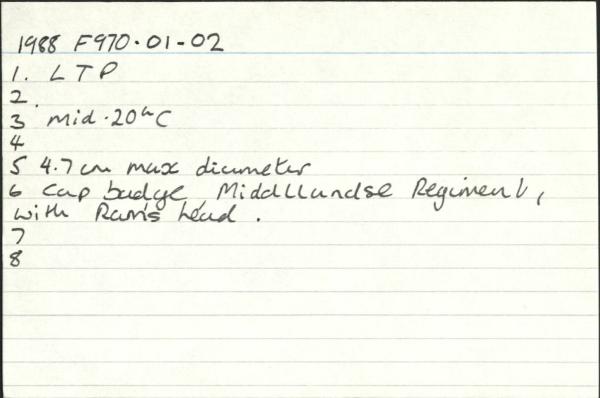 1988 F970.01-02
1. L T P
2.
3 Mid.20th C
4
5 4.7 cm max diameter
6 Cap badge, Middllandse Regiment,
with Ram's head.
7
8